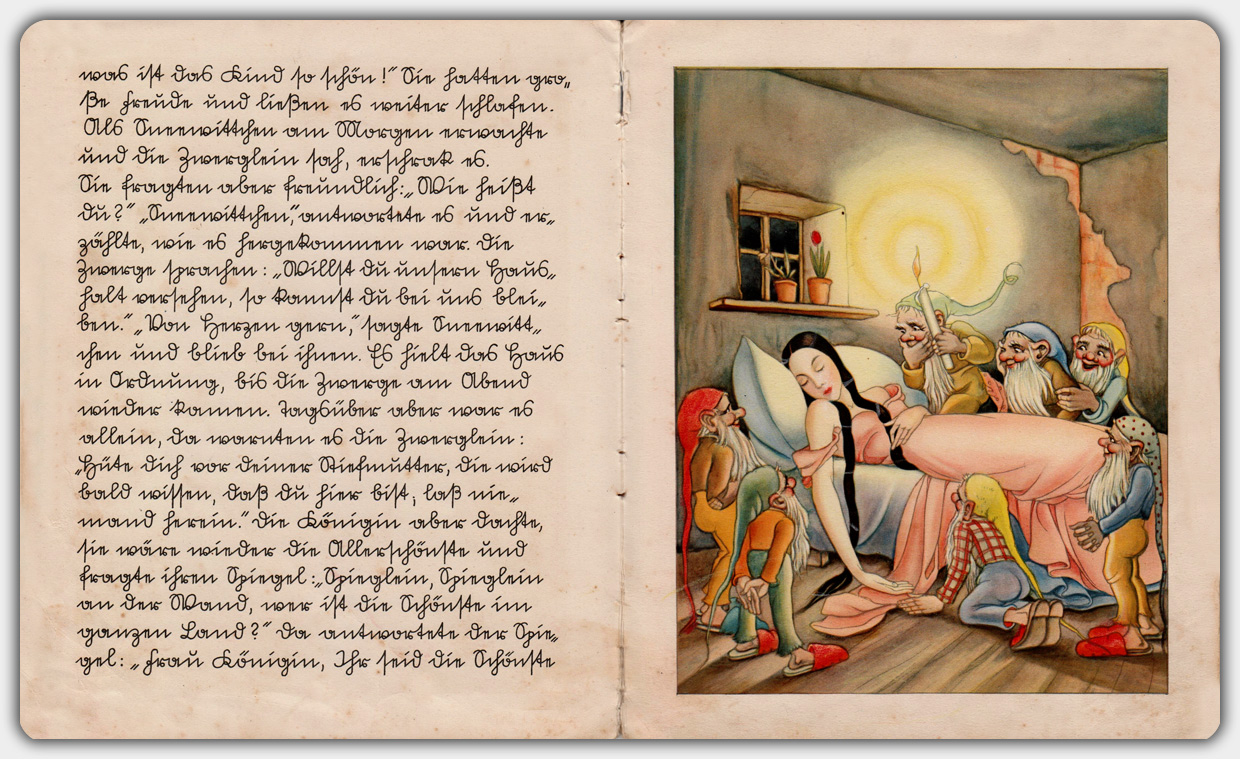 was ist das Kind so schön!“ Sie hatten gro„
ße Freude und ließen es weiter schlafen.
Als Sneewittchen am Morgen erwachte
und die Zwerglein sah, erschrak es.
Sie fragten aber freundlich: „Wie heißt
du?“ „Sneewittchen,“ antwortete es und er„
zählte, wie es hergekommen war. Die
Zwerge sprachen: „Willst du unsern Haus„
halt versehen, so kannst du bei uns blei„
ben.“ „Von Herzen gern,“ sagte Sneewitt„
chen und blieb bei ihnen. Es hielt das Haus
in Ordnung, bis die Zwerge am Abend
wieder kamen. Tagsüber aber war es
allein, da warnten es die Zwerglein:
„Hüte dich vor deiner Stiefmutter, die wird
bald wissen, daß du hier bist; laß nie„
mand herein.“ Die Königin aber dachte,
sie wäre wieder die Allerschönste und
fragte ihren Spiegel: „Spieglein, Spieglein
an der Wand, wer ist die Schönste im
ganzen Land?“ Da antwortete der Spie„
gel: „Frau Königin, Ihr seid die Schönste